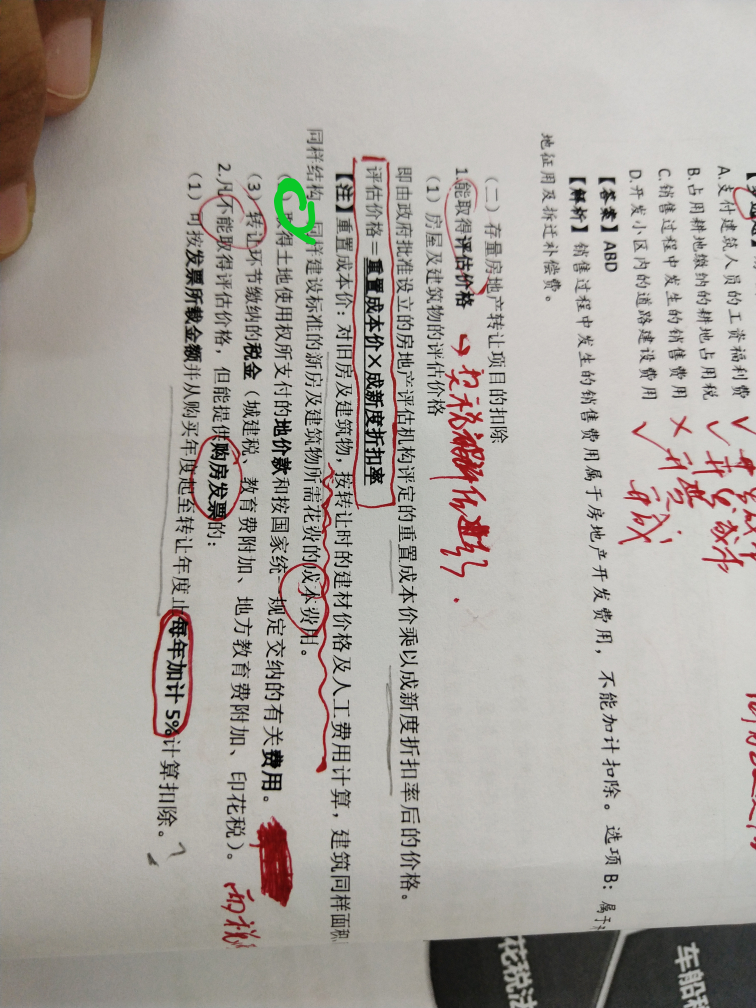 A.支付建筑人员的工资福利费
B.占用耕地缴纳的耕地占用税
C.销售过程中发生的销售费用
D.开发小区内的道路建设费用
【答案】ABD
【解析】销售过程中发生的销售费用属于房地产开发费用，不能加计扣除。选项 B：属于
地征用及拆迁补偿费。
（二）存量房地产转让项目的扣除
1.能取得评估价格
（1）房屋及建筑物的评估价格
即由政府批准设立的房地产评估机构评定的重置成本价乘以成新度折扣率后的价格。
评估价格＝重置成本价×成新度折扣率
【注】重置成本价：对旧房及建筑物，按转让时的建材价格及人工费用计算，建筑同样面积
同样结构、同样建设标准的新房及建筑物所需花费的成本费用。
取得土地使用权所支付的地价款和按国家统一规定交纳的有关费用。
（3）转让环节缴纳的税金（城建税、教育费附加、地方教育费附加、印花税）。
2.凡不能取得评估价格，但能提供购房发票的：
（1）可按发票所载金额并从购买年度起至转让年度止每年加计 5%计算扣除。
花税法
车船税